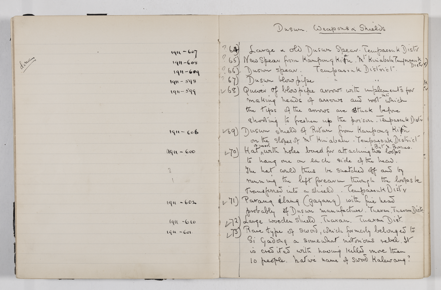 Dusun. Weapons & Shields
1911-607
1911-605
1911-609
1911-591
1911-599
1911-606
1911-600
1911-602
1911-610
1911-601
Large & old Dusun Spear. Tempassuk Distr
65) New Spear from Kampong
66) Dusun Spear. Tempassuk District
67) Dusun blowpipe " "
68) Quiver of blowpipe arrows with implements for
making heads of arrows and which
the tips of the arrows are stuck before
shooting to freshen up the poison. Tempassuk Distr
69) Dusun shield of Rotan from Kampong
on the slopes of Mt Kinabalu Tempassuk District
70) Hat with holes bored for attaching the loops
to hang one on each side of the head.
The hat could thus be snatched off and by
running the left forearm through the loops be
transformed into a shield. Tempassuk Distr
71) Parang ilang (gayang) with fine head
probably of Dusun manufacture. Tuaran Tuaran Distr
72) Large wooden shield Tuaran Tuaran Distr
73) Rare type of sword, which formerly belonged to
Si Gadong a somewhat notorious rebel. It
is credited with having killed more than
10 people. Native name of sword